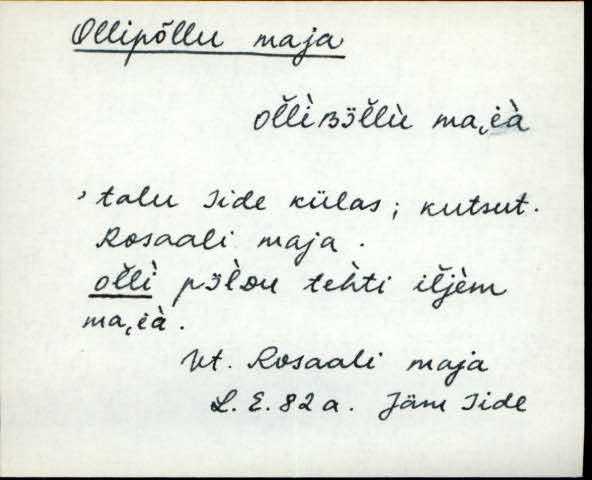 Ollipõllu maja
ol̆l̆ì ʙɜ̈l̆l̆ù ma͔i̯à
, talu Iide külas; kutsut.
Rosaali maja.
ol̆l̆ì tehti
ma͔i̯à.
Vt. Rosaali maja
L.E. 82a. Jäm Iide